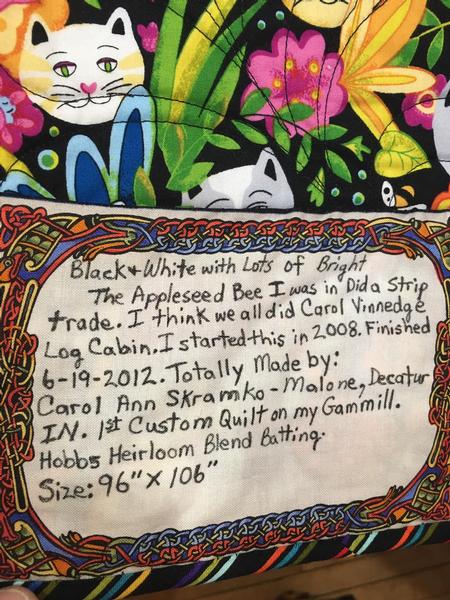 Black & White with Lots of Bright
The Appleseed Bee I was in Did a Strip
trade. I think we all did Carol Vinnedge
Log Cabin. I started this in 2008. Finished
6-19-2012. Totally Made by:
Carol Ann Skramko-Malone, Decatur
IN. 1st Custom Quilt on my Gammill.
Hobbs Heirloom Blend Batting.
Size: 96" X 106"